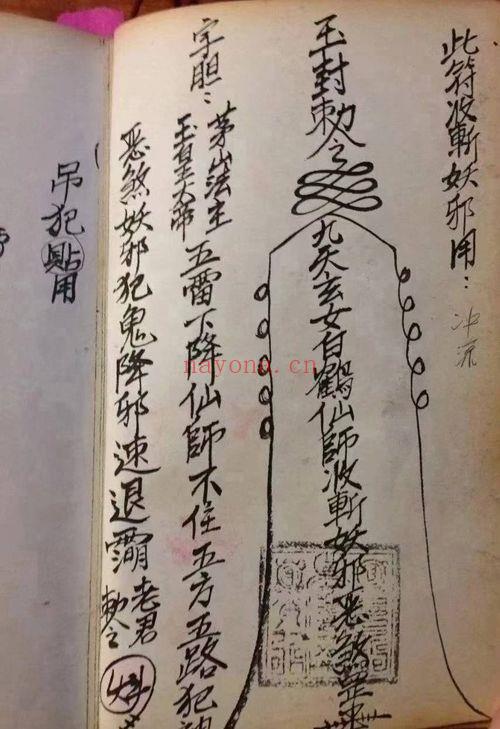 此符收斬妖邪用：
冲流
玉封勅令
九天玄女白鶴仙師收斬妖邪惡煞
字胆：
茅山法主
玉皇大帝
五雷下降仙師不住五方五路犯
惡煞妖邪犯鬼降邪速退
老君
勅令
吊犯貼用
nayona.cn